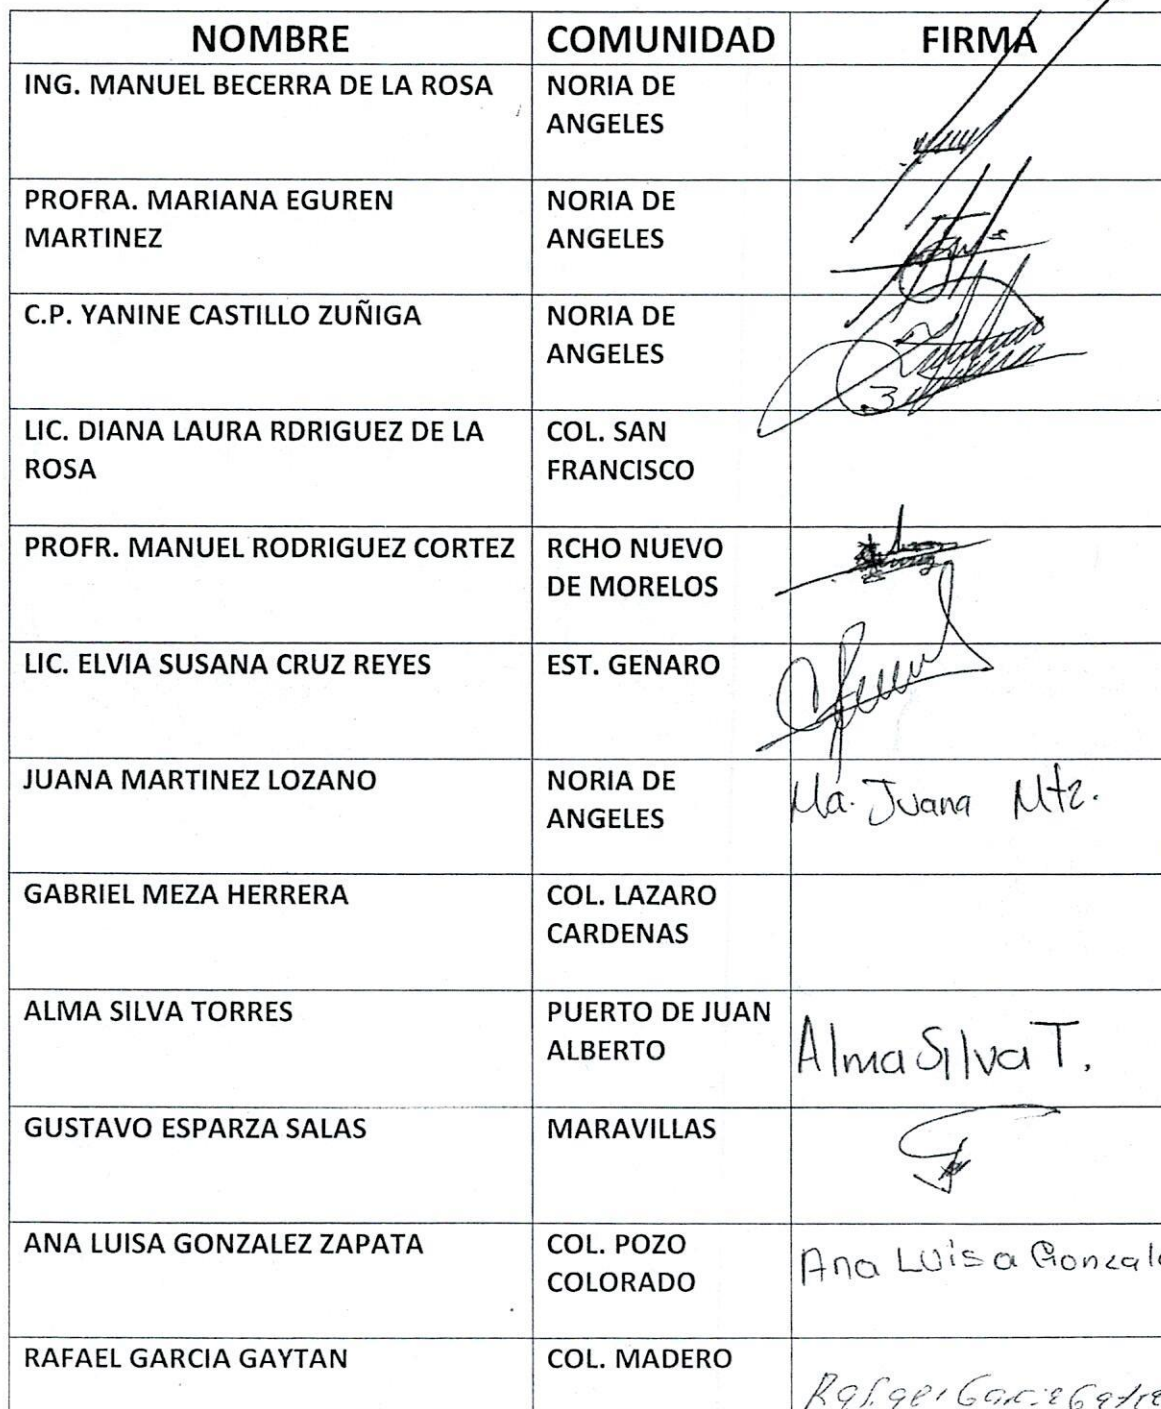 NOMBRE COMUNIDAD FIRMA
ING. MANUEL BECERRA DE LA ROSA NORIA DE
ANGELES
PROFRA. MARIANA EGUREN NORIA DE
MARTINEZ ANGELES
C.P. YANINE CASTILLO ZUÑIGA NORIA DE
ANGELES
LIC. DIANA LAURA RDRIGUEZ DE LA COL. SAN
ROSA FRANCISCO
PROFR. MANUEL RODRIGUEZ CORTEZ RCHO NUEVO
DE MORELOS
LIC. ELVIA SUSANA CRUZ REYES EST. GENARO
JUANA MARTINEZ LOZANO NORIA DE Ma. Juana Mtz.
ANGELES
GABRIEL MEZA HERRERA COL. LAZARO
CARDENAS
ALMA SILVA TORRES PUERTO DE JUAN Alma Silva T.
ALBERTO
GUSTAVO ESPARZA SALAS MARAVILLAS
ANA LUISA GONZALEZ ZAPATA COL. POZO Ana Luisa Gonzale
COLORADO
RAFAEL GARCIA GAYTAN COL. MADERO